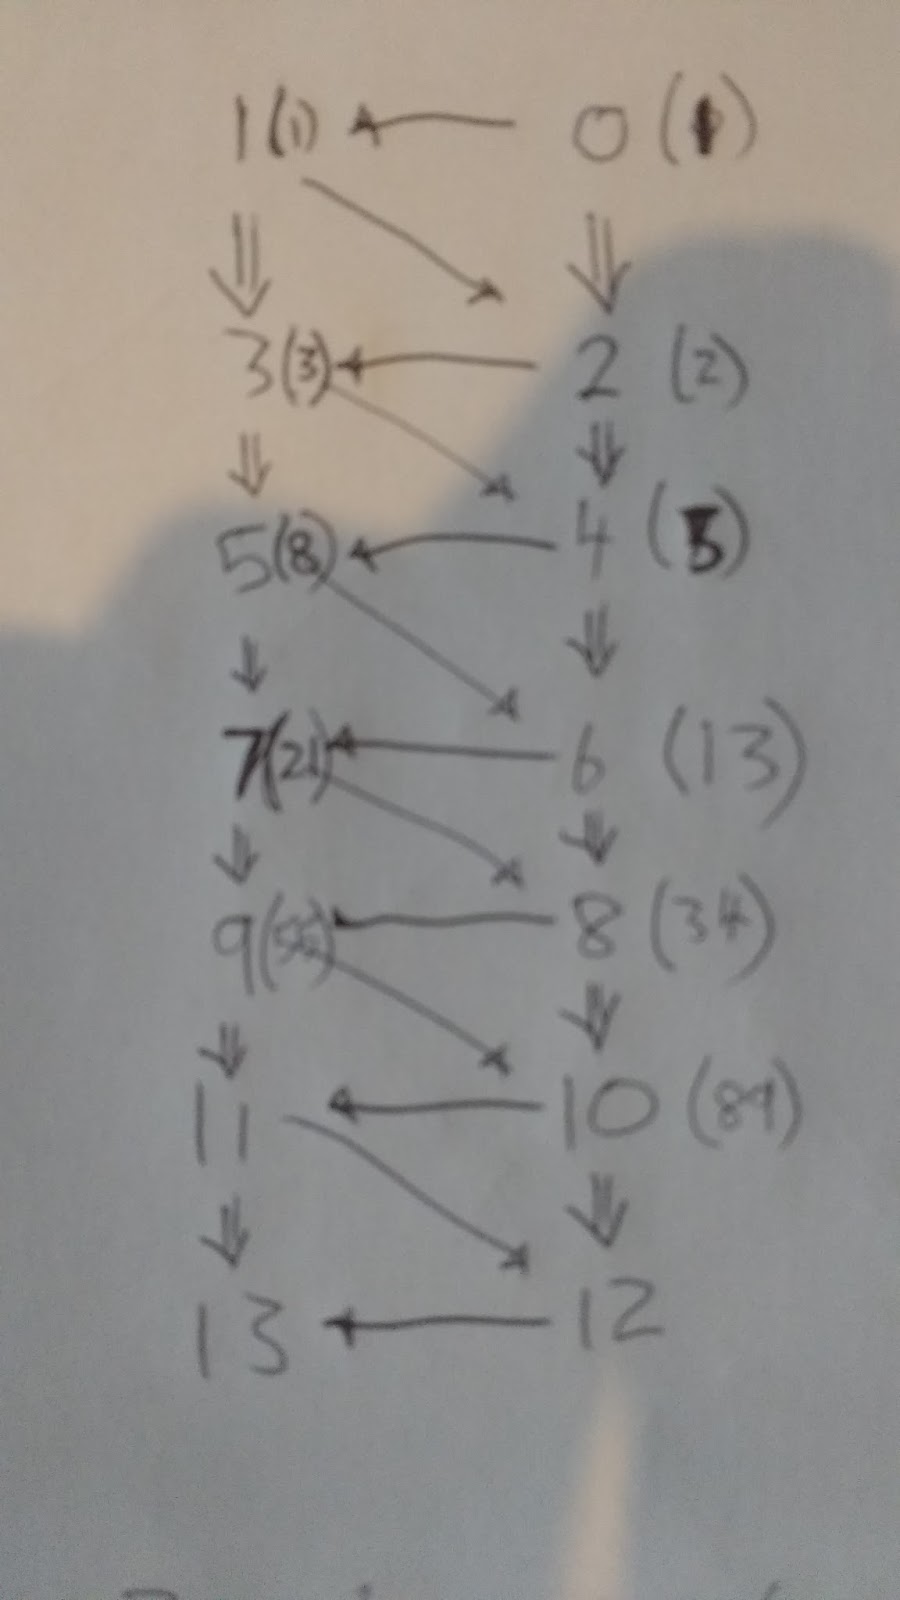 1 (1) 0 (1)
3 (3) 2 (2)
5 (8) 4 (5)
7 (21) 6 (13)
9 (55) 8 (34)
11 10 (89)
13 12